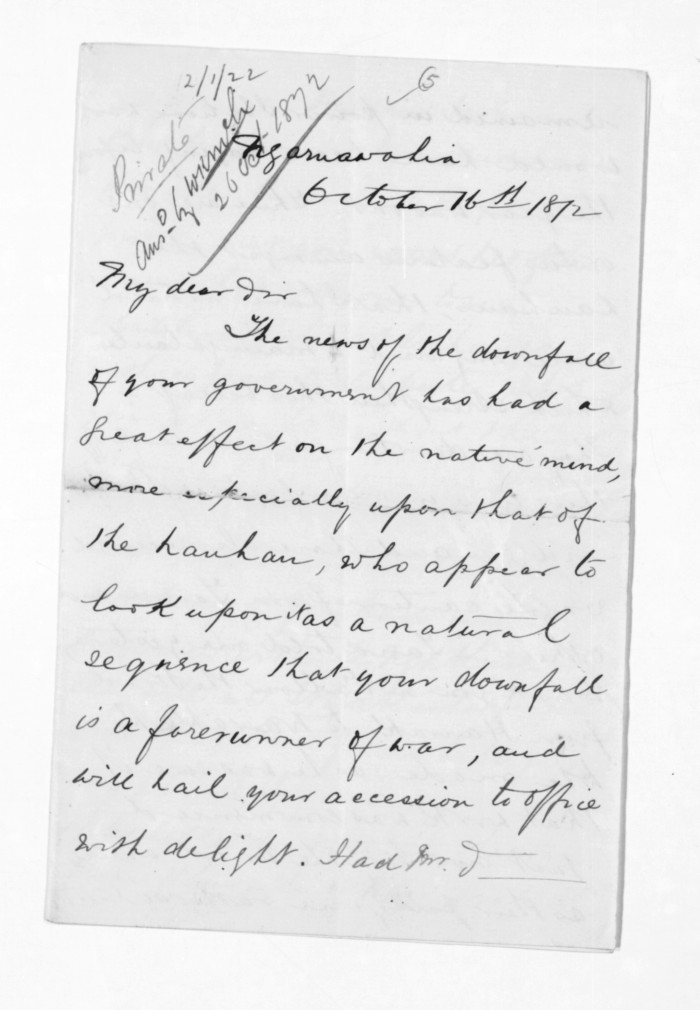 2/1/22
6
Private
Ansd by
26 Oct 1872
Ngaruawahia
October 16th 1872
My dear Sir
The news of the downfall
of your government has had a
great effect on the native mind,
more especially upon that of
the hauhau, who appear to
look upon it as a natural
sequence that your downfall
is a forerunner of war, and
will hail your accession to office
with delight. Had Mr. J